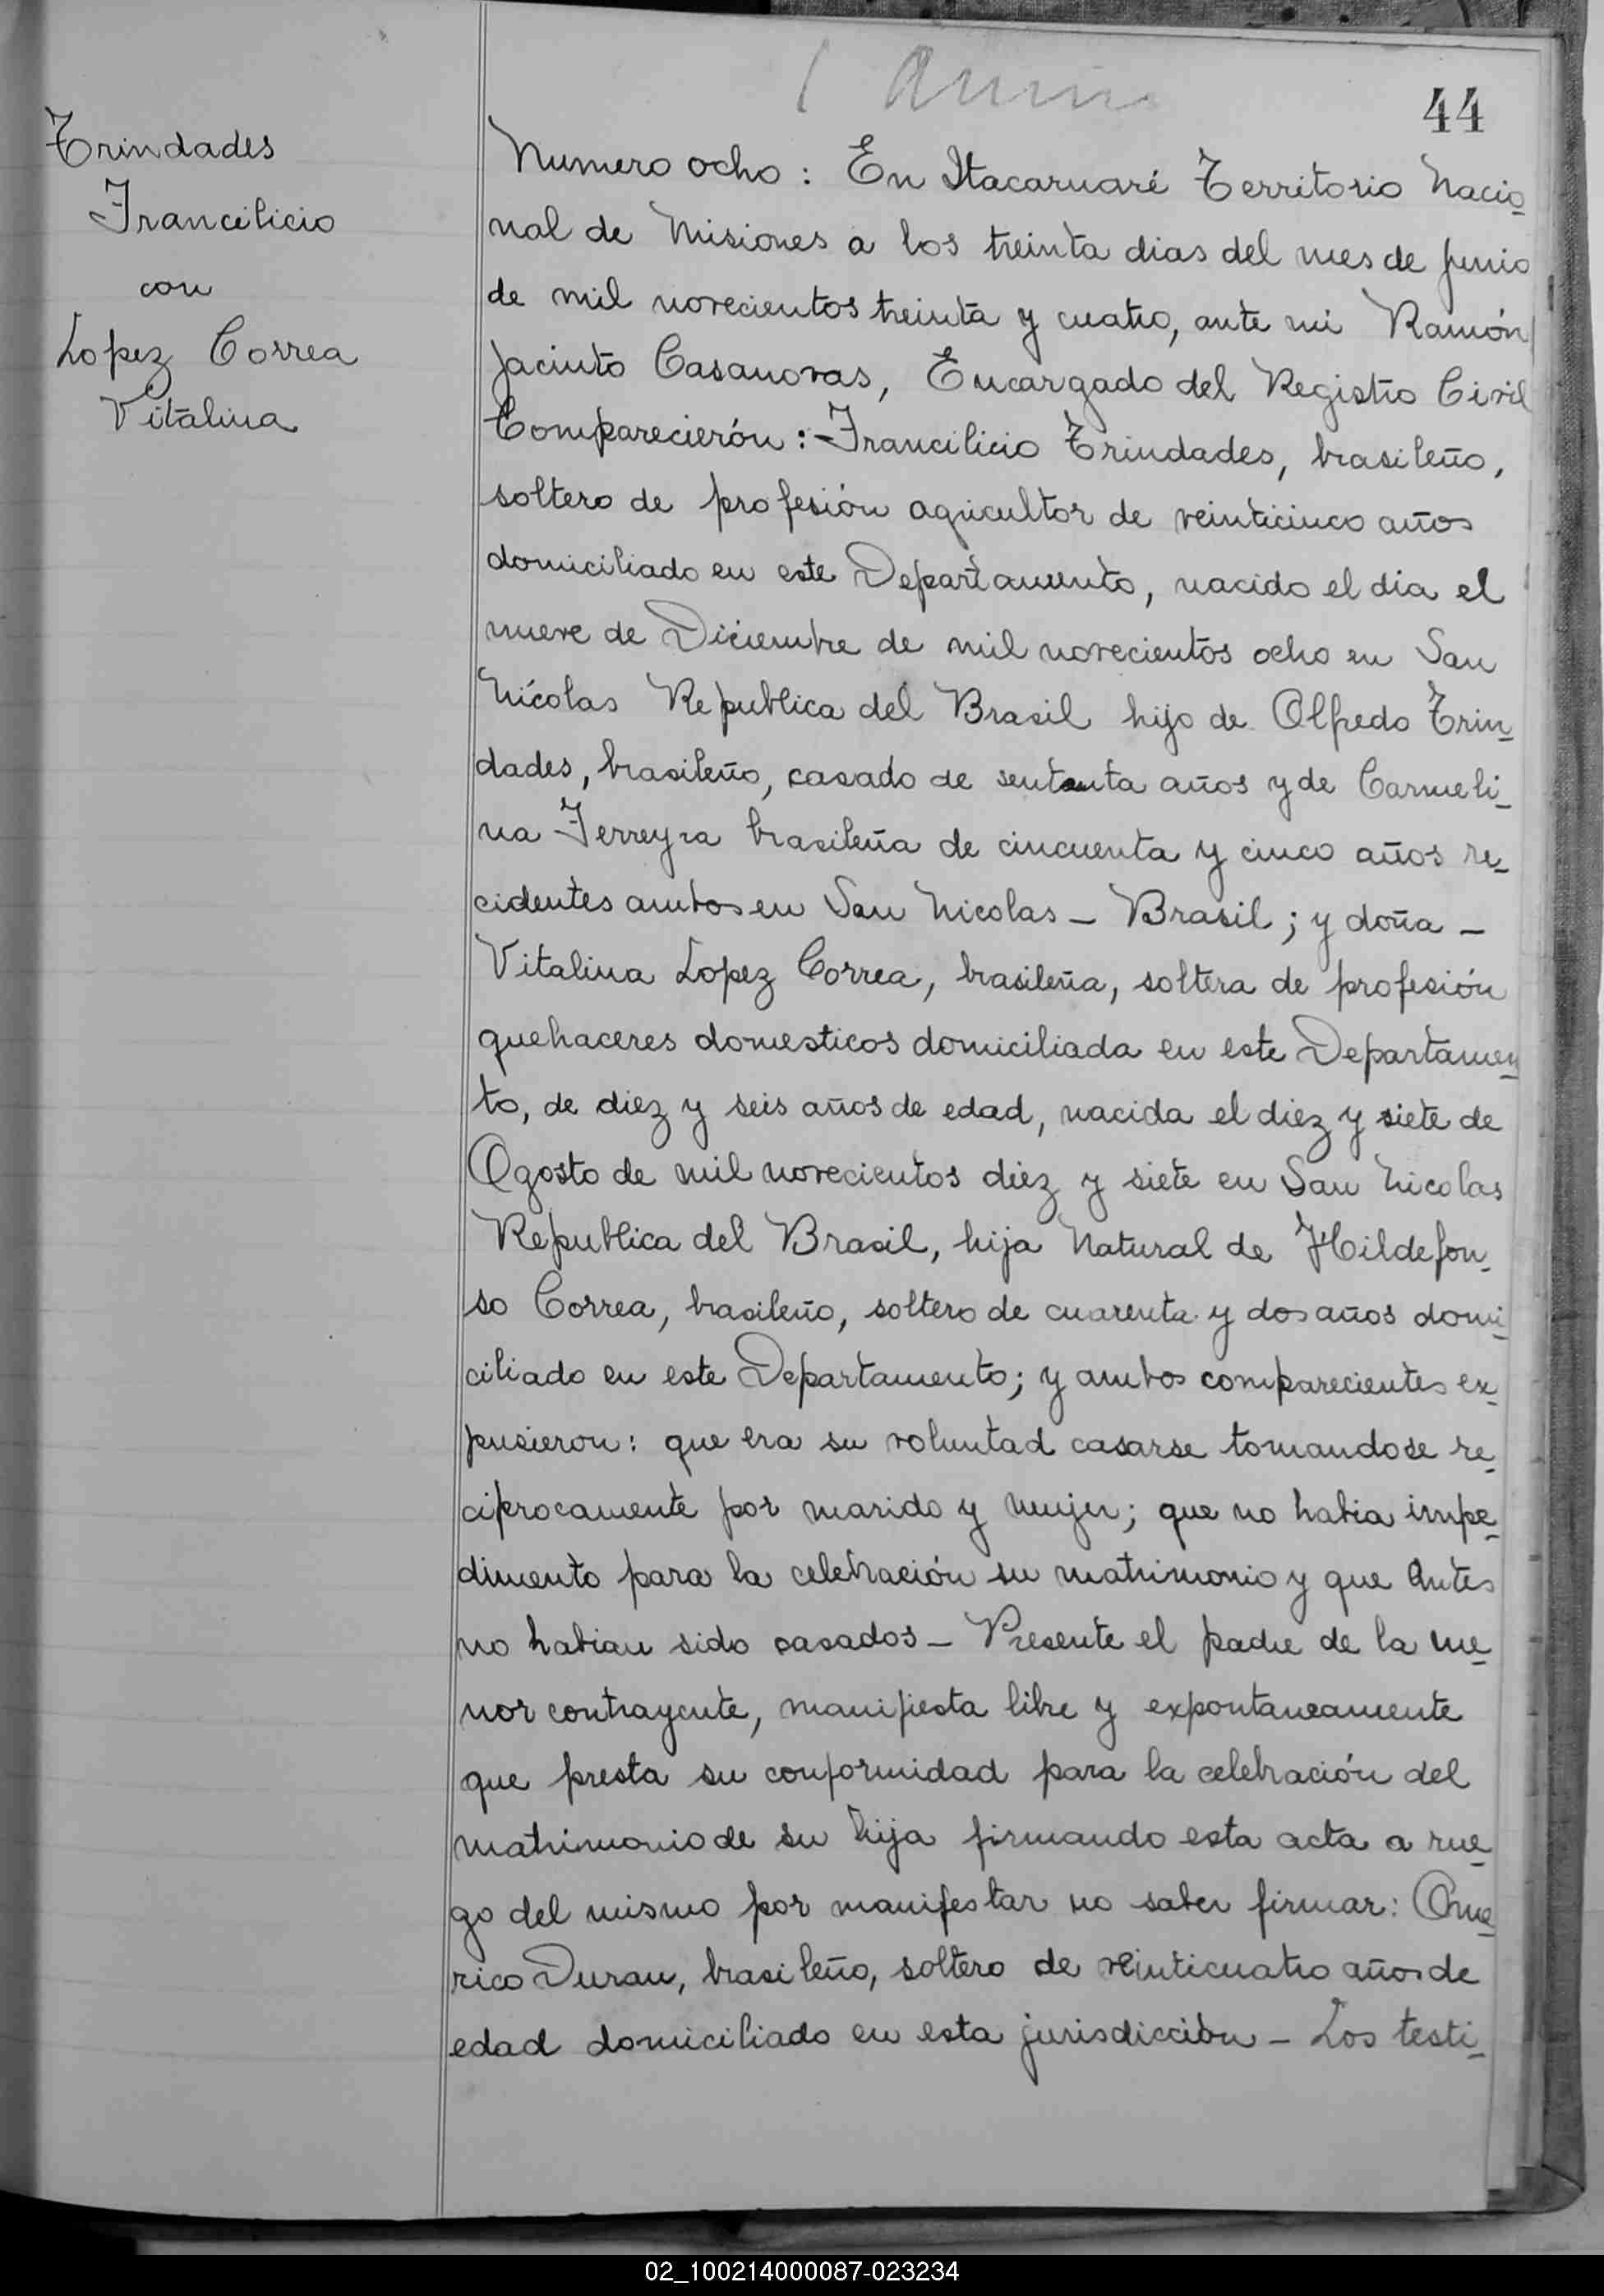 44
Trindades
Francilicio
con
Lopez Correa
Vitalina
Numero ocho: En Itacaruaré Territorio Nacio-
nal de Misiones a los treinta dias del mes de junio
de mil novecientos treinta y cuatro, ante mi Ramón
Jacinto Casanovas, Encargado del Registro Civil
Comparecierón: Francilicio Trindades, brasileño,
soltero de profesión agricultor de veinticinco años
domiciliado en este Departamento, nacido el dia el
nueve de Diciembre de mil novecientos ocho en San
Nicolas Republica del Brasil hijo de Alfredo Trin-
dades, brasileño, casado de sententa años y de Carmeli-
na Ferreyra brasileña de cincuenta y cinco años re-
cidentes ambos en San Nicolas - Brasil; y doña -
Vitalina Lopez Correa, brasileña, soltera de profesión
quehaceres domesticos domiciliada en este Departamen-
to, de diez y seis años de edad, nacida el diez y siete de
Agosto de mil novecientos diez y siete en San Nicolas
Republica del Brasil, hija Natural de Hildefon-
so Correa, brasileño, soltero de cuarenta y dos años domi-
ciliado en este Departamento; y ambos comparecientes ex-
pusieron: que era su voluntad casarse tomandose re-
ciprocamente por marido y mujer; que no habia impe-
dimento para la celebración su matrimonio y que antes
no habian sido casados - Presente el padre de la me-
nor contrayente, manifiesta libre y expontaneamente
que presta su conformidad para la celebración del
matrimonio de su hija firmando esta acta a rue-
go del mismo por manifestar no saber firmar: Ame-
rico Duran, brasileño, soltero de veinticuatro años de
edad domiciliado en esta jurisdicción - Los testi-
02_100214000087-023234